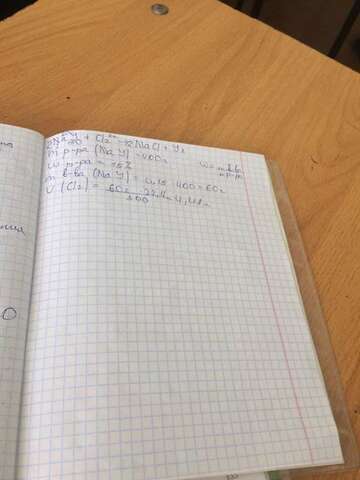 2NaY + Cl2 → 2NaCl + Y2
m р-ра (NaY) = 400г
w р-ра = 15%
m в-ва (NaY) = 0,15 · 400 = 60г
V (Cl2) = 60г · 22,4 / 300 = 4,48л
w = m в-ва / m р-ра
О